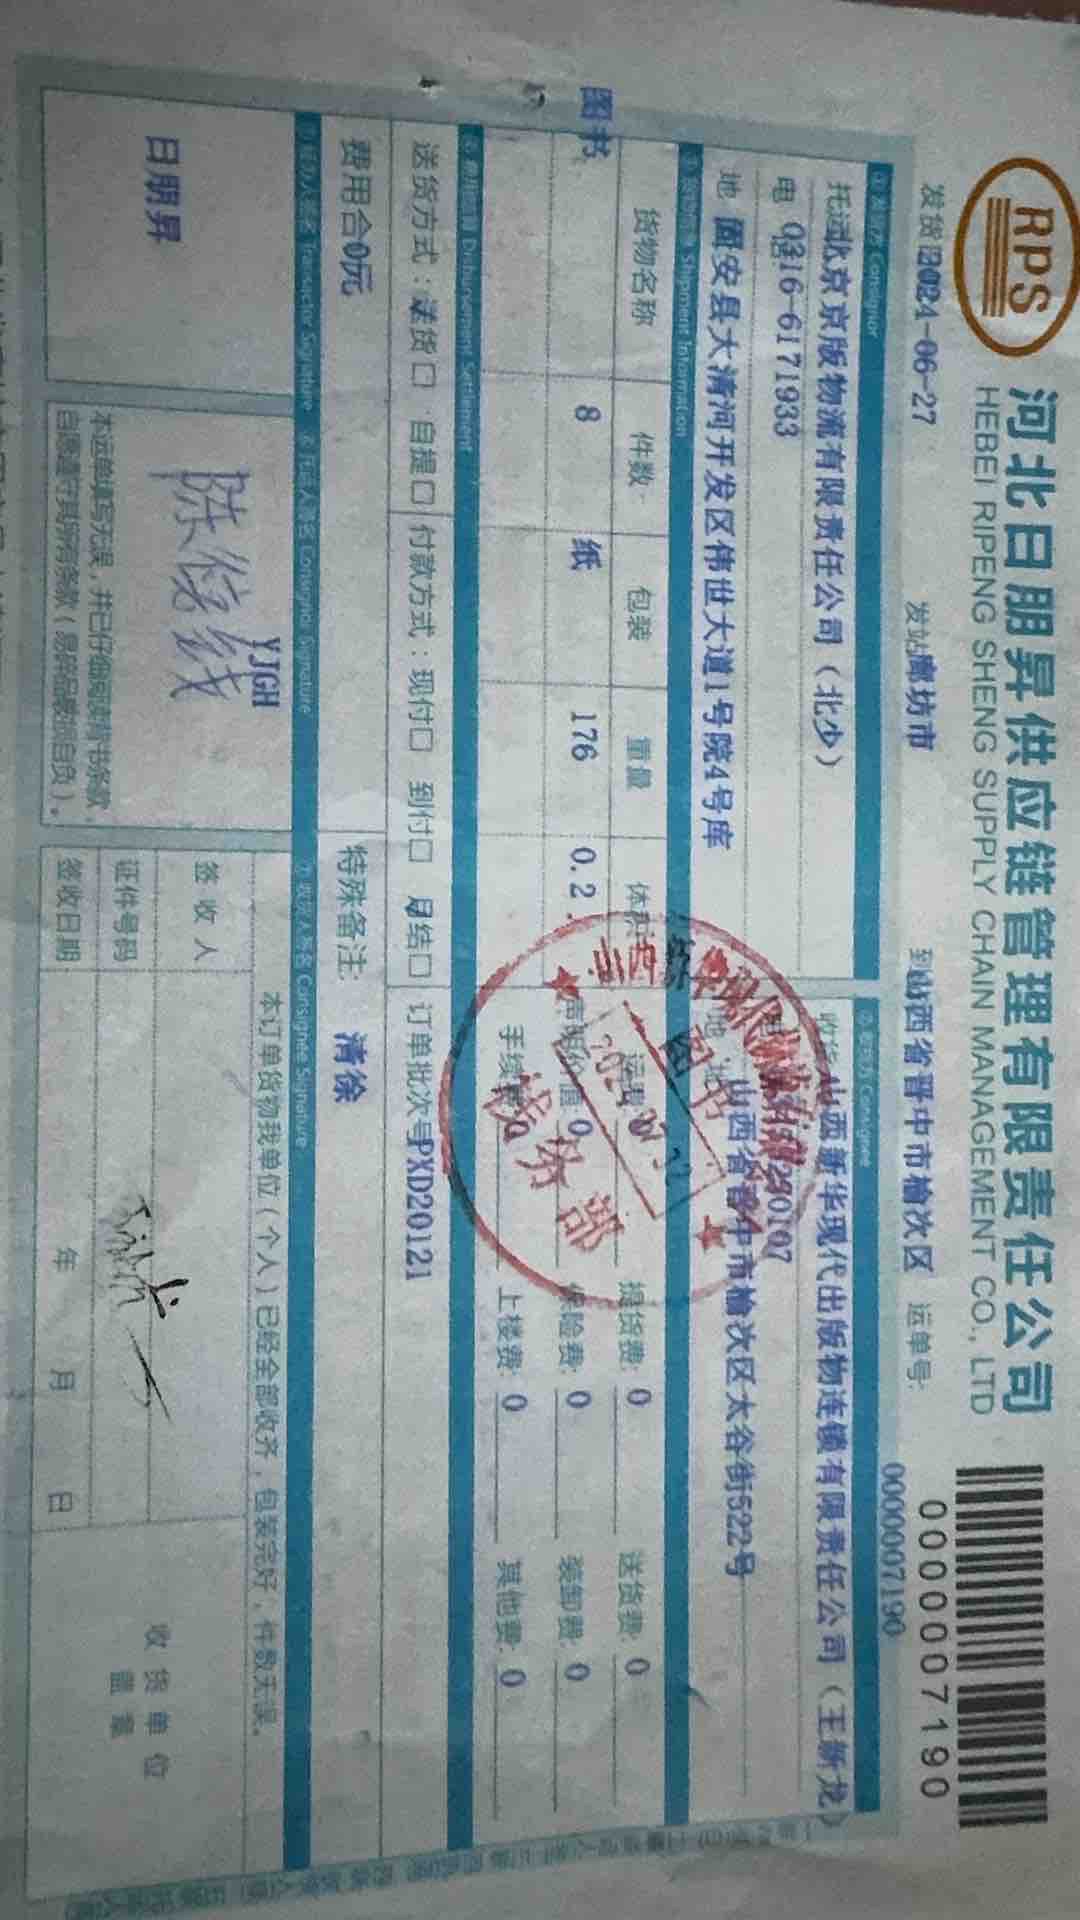 RPS
河北日朋昇供应链管理有限责任公司
HEBEI RIPENG SHENG SUPPLY CHAIN MANAGEMENT CO., LTD
0000007190
0000007190
发货日2024-06-27
发站廊坊市
到山西省晋中市榆次区
运单号:
① 发货方 Consignor
托运北京京版物流有限责任公司（北少）
电 0316-6171933
地 固安县大清河开发区伟世大道1号院4号库
② 收货方 Consignee
收货山西新华现代出版物连锁有限责任公司（王新龙）
地 址 山西省晋中市榆次区太谷街522号
Shipment Information
货物名称 件数 包装 重量 体积
图书 8 纸 176 0.2
运费 0 提货费: 0 送货费: 0
声明价值 0 保险费: 0 装卸费: 0
手续费 0 上楼费: 0 其他费: 0
业务部
Disbursement Settlement
送货方式：送货口 自提口
付款方式：现付口 到付口 月结口
订单批次号PXD20121
费用合0元
特殊备注: 清徐
经办人签名 Transactor Signature
托运人签名 Consignor Signature
收货人签名 Consignee Signature
日朋昇
YJGH
本运单填写无误，并已仔细阅读背书条款，
自愿遵守其所有条款（易碎品破损自负）。
本订单货物我单位（个人）已经全部收齐，包装完好，件数无误。
签 收 人
证件号码
签收日期 年 月 日
收 货 单 位
盖 章